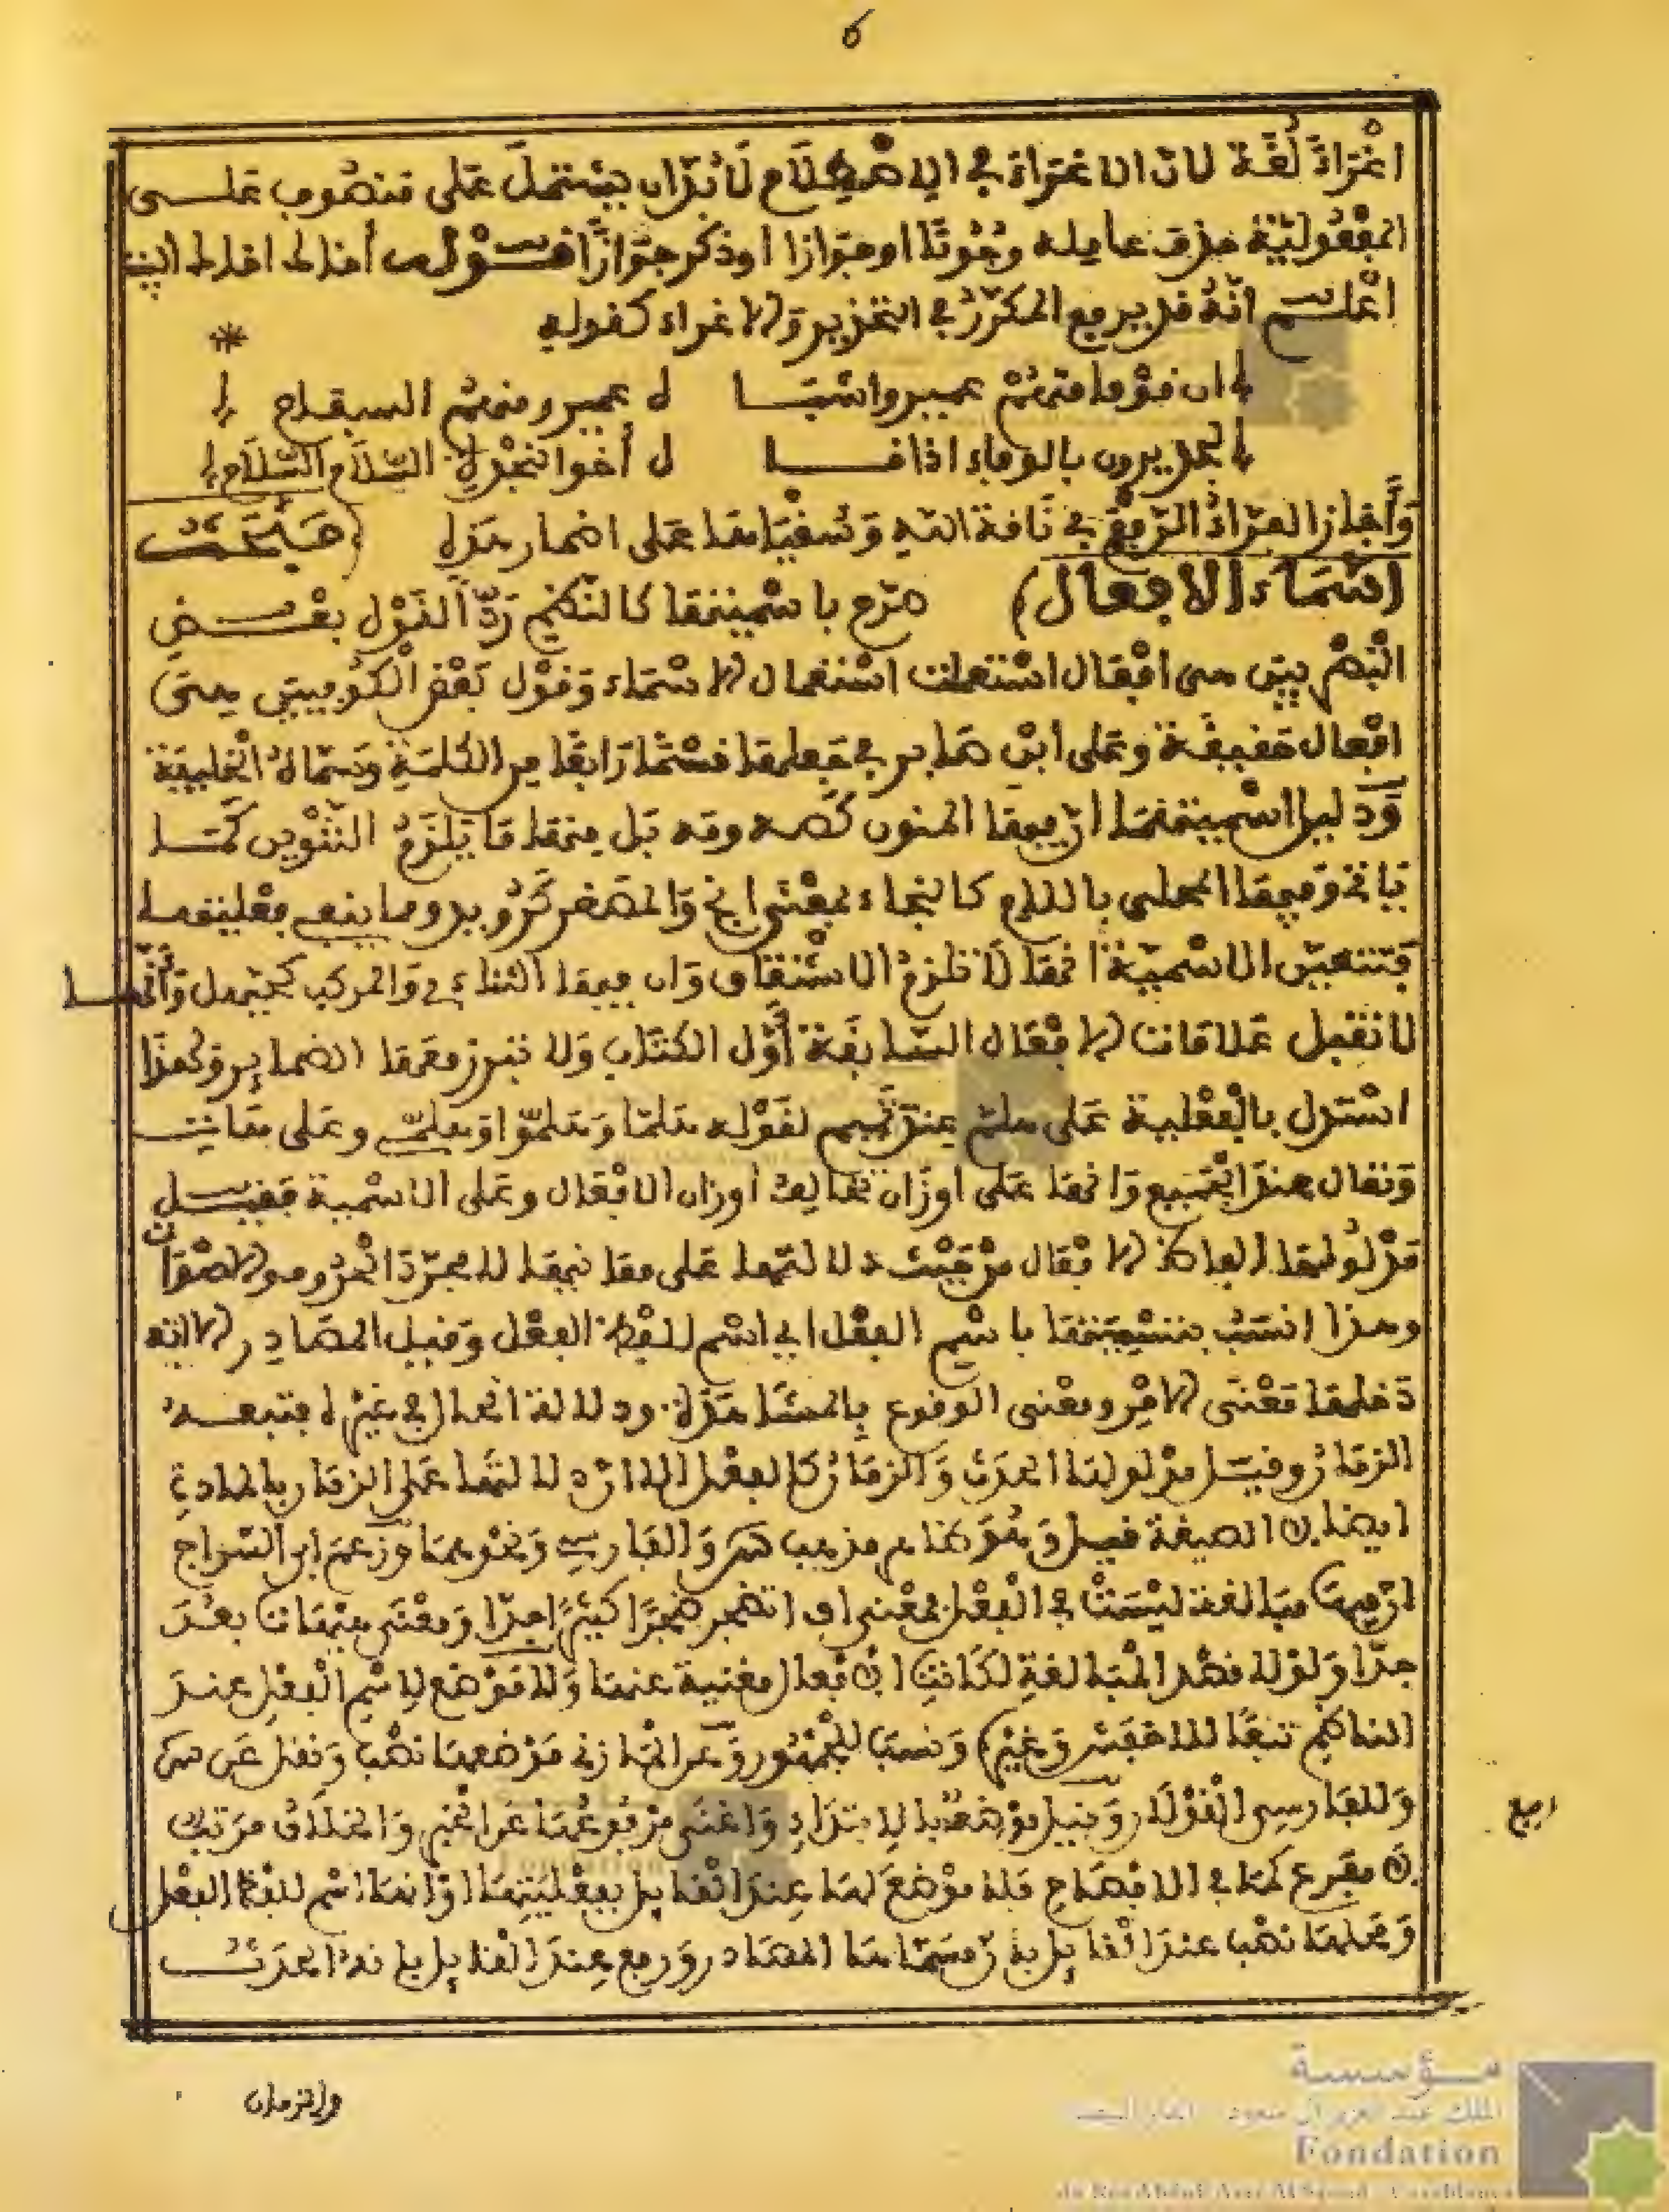 6
اغراء لغة لان الاغراء في الاصطلاح لا بد ان يشتمل على منصوب على
المفعولية حذف عامله وجوبا او جوازا او ذكر جوازا فـقـولك أخاك اخاك
اعلم انه قد يرفع المكرر في التحذير والاغراء كقوله
ان قوما منهم عمير واشبا ه عمير ومنهم السفاح
لجديرون بالوفاء اذا قا ل أخو النجدة السلاح السلاح
وأجاز الفراء الرفع في ناقة الله وسقياها على اضمار هذه (مبحث
اسماء الافعال) صرح باسميتها كالنظم ردا لقول بعض
البصريين هي افعال استعملت استعمال الاسماء وقول بعض الكوفيين هي
افعال حقيقة وعلى ابن صابر في جعلها قسما رابعا من الكلمة وسماه الخليفة
ودليل اسميتها ان فيها المنون كصه ومه بل منها ما يلزم التنوين كما
ياتي وفيها المحلى باللام كالنجاء بمعنى انج والمصغر كرويد وما ينفي فعليتها
فتتعين الاسمية انها لا تلزم الاشتقاق وان فيها الثناءي والمركب كحيهل وانها
لا تقبل علامات الافعال السابقة أول الكتاب ولا تبرز معها الضماير ولهذا
استدل بالفعلية على هلم عند تميم لقوله هلما وهلموا وهلمي وعلى هات
وتعال عند الجميع وانها على اوزان تخالف اوزان الافعال وعلى الاسمية فقيل
مدلولها الفاظ الافعال من حيث دلالتها على معانيها لا مجردة الحروف والاصوات
وهذا انسب بتسميتها باسم الفعل اي اسم للفظ الفعل وقيل المصادر الا انه
دخلها معنى الامر ومعنى الوقوع بالمشاهدة ودلالة الحال في غيره فتبعه
الزمان وقيل مدلولها الحدث والزمان كالفعل الا ان دلالتها على الزمان بالمادة
ايضا لا الصيغة قيل وهو ظاهر مذهب س والفارسي ونحوهما وزعم ابن السراج
ان فيها مبالغة ليست في الفعل فمعنى اف اتضجر ضجرا كثيرا جدا ومعنى هيهات بعد
جدا ولولا قصد المبالغة لكانت الافعال مغنية عنها ولا موضع لاسم الفعل عند
الناظم تبعا للاخفش وغيره ونسب للجمهور وعن المازني موضعها نصب ونقل عن س
وللفارسي القولان وقيل موضعها بالابتداء واغنى مرفوعها عن الخبر والخلاف مرتب
مفرع كما في الافصاح فلا موضع لها عند القايل بفعليتها او انها اسم للفظ الفعل
ومحلها نصب عند القايل بان مسماها المصادر ورفع عند القايل بانه الحدث
ربع
والزمان
مـؤسسة
الملك عبد العزيز آل سعود - الدار البيضاء
Fondation
du Roi Abdul-Aziz Al Saoud - Casablanca